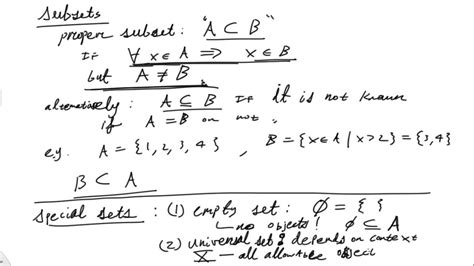 Subsets
proper subset: "A ⊂ B"
If ∀ x ∈ A ⟹ x ∈ B
but A ≠ B
alternatively: A ⊆ B If it is not known
if A = B or not.
e.g. A = {1, 2, 3, 4}, B = {x ∈ A | x > 2} = {3, 4}
B ⊂ A
Special sets: (1) empty set: ∅ = { }
no objects! ∅ ⊆ A
(2) universal set: depends on context
X — all allowable object